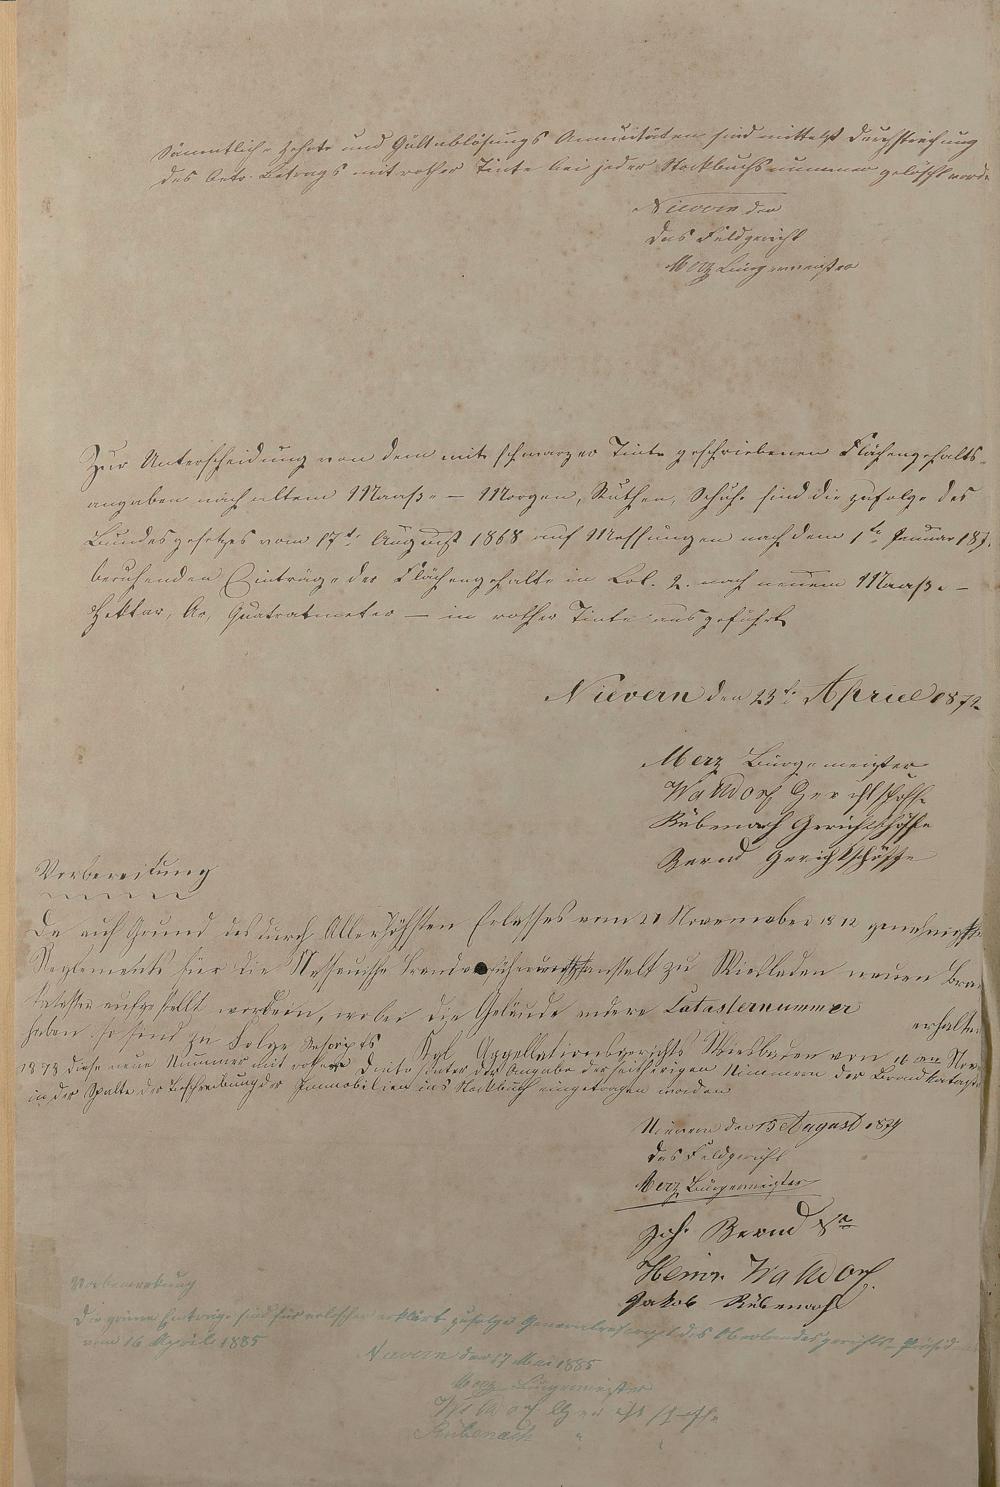 Sämmtliche Zehnte und Gültablösungs Annuitäten sind mittelst Durchstreichung
des betr. Betrags mit rother Tinte bei jeder Stockbuchsnummer gelöscht worde
Nievern den
Das Feldgericht
Merz Bürgermeister
Zur Unterscheidung von dem mit schwarzer Tinte geschriebenen Flächengehalts-
angaben nach altem Maaße – Morgen, Ruthen, Schuhe sind die zufolge des
Bundesgesetzes vom 17t. August 1868 auf Messungen nach dem 1te Januar 187.
beruhenden Einträge der Flächengehalte in Col. 2. nach neuem Maaße –
Hektar, Ar, Quatratmeter – in rother Tinte ausgeführt
Nievern den 23t. April 1872
Merz Bürgemeister
Walldorf Gerichtschöffe
Rübenach Gerichtschöffe
Bernd Gerichtschöffe
Vorbereitung
Da auf Grund des durch Allerhöchsten Erlasses vom 21 November 1872 genehmigte
Reglements für die Nassauische Brandversicherungsanstalt zu Wiesbaden neuen Bra
kataster aufgestellt worden, wobei die Gebäude andere Catasternummer erhalten
haben so sind zu Folge Rescripts Kgl. Appellationsgerichts Wiesbaden vom Nov
1873 diese neue Nummer mit rother Dinte unter der Angabe der seitherigen Nummern der Brandkataster
in der Spalte der Beschreibung der Immobilien ins Stockbuch eingetragen worden
Nievern den 15 August 1874
Das Feldgericht
Merz Bürgermeister
Joh. Bernd
Heinr. Walldorf
Jakob Rübenach
Vorbemerkung
Die grünen Einträge sind für erloschen erklärt zufolge Generalrescript des Oberlandesgerichts-Präside
vom 16 April 1885
Nievern den 17 Mai 1885
Merz Bürgermeister
Walldorf Gerichtschöffe
Rübenach "